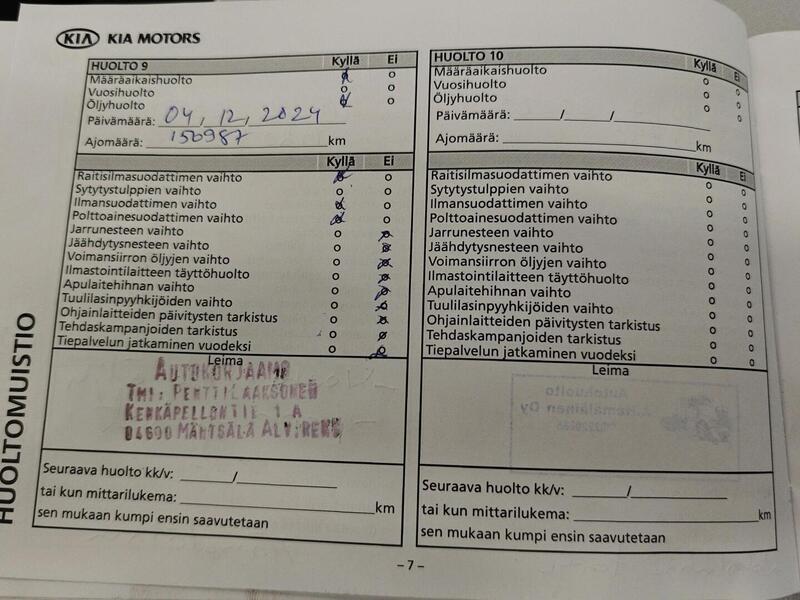 KIA KIA MOTORS
HUOLTO 9 Kyllä Ei
Määräaikaishuolto o
Vuosihuolto o o
Öljyhuolto o
Päivämäärä: 04, 12, 2024
Ajomäärä: 150987 km
Kyllä Ei
Raitisilmasuodattimen vaihto o
Sytytystulppien vaihto o o
Ilmansuodattimen vaihto o
Polttoainesuodattimen vaihto o
Jarrunesteen vaihto o
Jäähdytysnesteen vaihto o
Voimansiirron öljyjen vaihto o
Ilmastointilaitteen täyttöhuolto o
Apulaitehihnan vaihto o
Tuulilasinpyyhkijöiden vaihto o
Ohjainlaitteiden päivitysten tarkistus o
Tehdaskampanjoiden tarkistus o
Tiepalvelun jatkaminen vuodeksi o
Leima
AUTOKORJAAMO
TMI: PENTTI LAAKSONEN
KENKÄPELLONTIE 1 A
04600 MÄNTSÄLÄ
Seuraava huolto kk/v: /
tai kun mittarilukema: km
sen mukaan kumpi ensin saavutetaan
HUOLTO 10 Kyllä Ei
Määräaikaishuolto o o
Vuosihuolto o o
Öljyhuolto o o
Päivämäärä: / /
Ajomäärä: km
Kyllä Ei
Raitisilmasuodattimen vaihto o o
Sytytystulppien vaihto o o
Ilmansuodattimen vaihto o o
Polttoainesuodattimen vaihto o o
Jarrunesteen vaihto o o
Jäähdytysnesteen vaihto o o
Voimansiirron öljyjen vaihto o o
Ilmastointilaitteen täyttöhuolto o o
Apulaitehihnan vaihto o o
Tuulilasinpyyhkijöiden vaihto o o
Ohjainlaitteiden päivitysten tarkistus o o
Tehdaskampanjoiden tarkistus o o
Tiepalvelun jatkaminen vuodeksi o o
Leima
Seuraava huolto kk/v: /
tai kun mittarilukema: km
sen mukaan kumpi ensin saavutetaan
HUOLTOMUISTIO
– 7 –